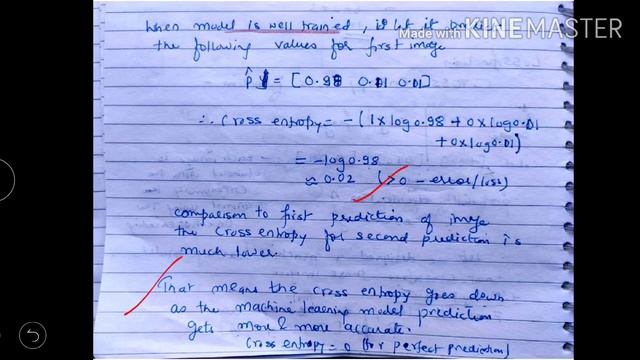 when model is well trained, let it
Made with KINEMASTER
the following values for first image
p̂ 1 = [0.98 0.01 0.01]
∴ Cross entropy = -(1×log0.98 + 0×log0.01
+0×log0.01)
= -log0.98
≈ 0.02 (>0 - error/loss)
comparison to first prediction of image
the cross entropy for second prediction is
much lower.
That means the cross entropy goes down
as the machine learning model prediction
gets more & more accurate.
Cross entropy = 0 (for perfect prediction)